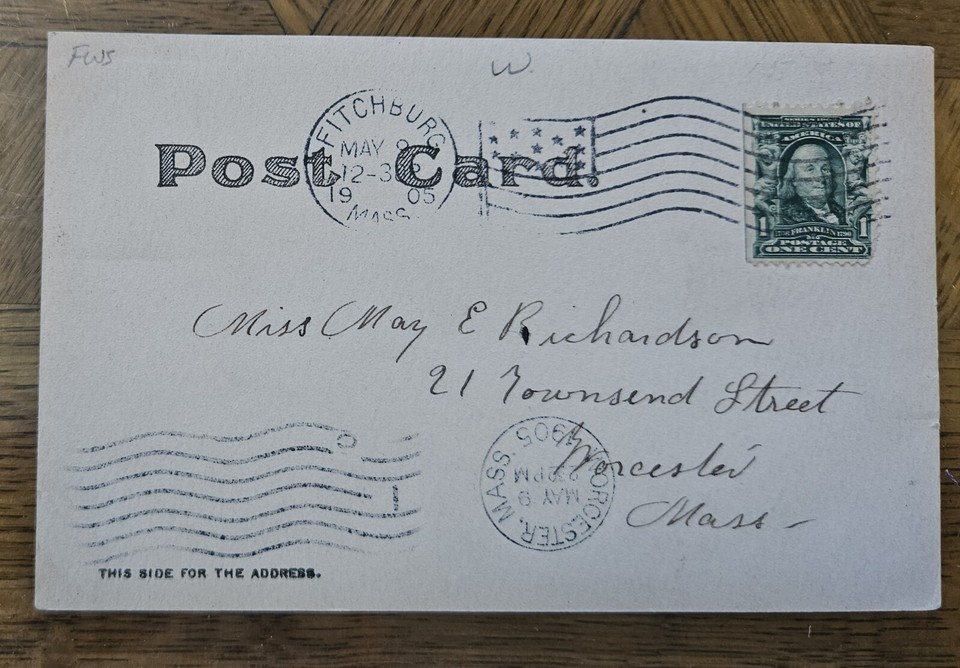 FWS
W.
FITCHBURG
MAY 9
12-3
1905
MASS.
Post Card.
SERIES 1902
UNITED STATES OF
AMERICA
1 FRANKLIN 1
POSTAGE
ONE CENT
Miss May E Richardson
21 Townsend Street
Worcester
Mass -
WORCESTER, MASS.
MAY 9
2 PM
1905
THIS SIDE FOR THE ADDRESS.